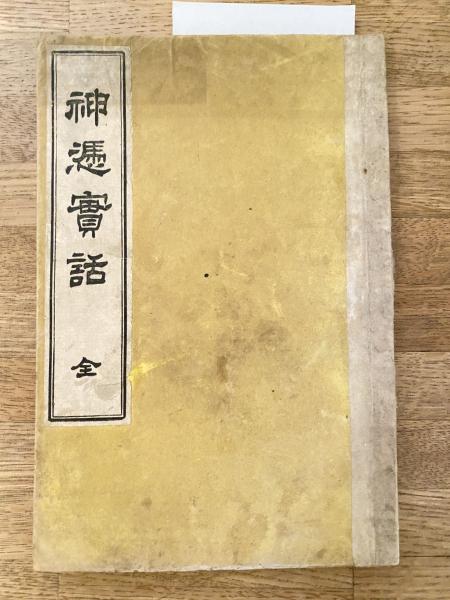 神憑實話 全